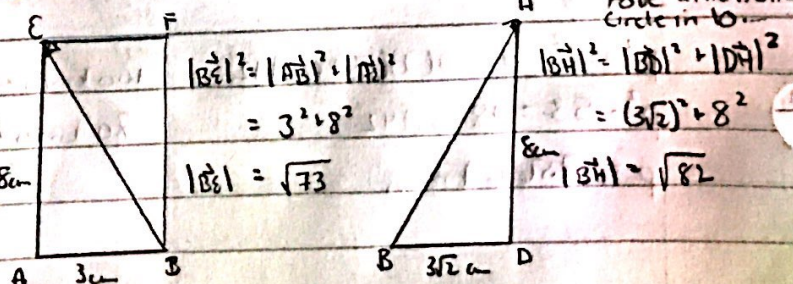 E F H
Circle in 10
|BE|² = |AB|² + |AE|²
= 3² + 8²
|BE| = √73
8cm
A 3cm B
|BH|² = |BD|² + |DH|²
= (3√2)² + 8²
8cm
|BH| = √82
B 3√2 cm D